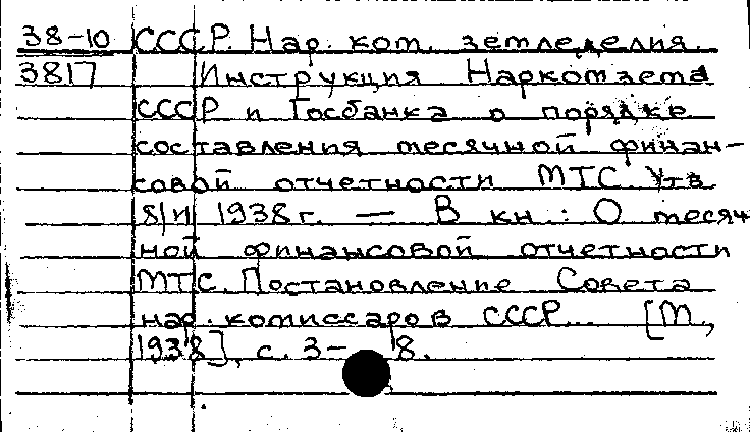 38-10 СССР. Нар. ком. земледелия.
3817 Инструкция Наркомзема
СССР и Госбанка о порядке
составления месячной финан-
совой отчетности МТС. Утв.
8/II 1938 г. — В кн.: О месяч
ной финансовой отчетности
МТС. Постановление Совета
нар. комиссаров СССР... [М.,
1938], с. 3- 8.